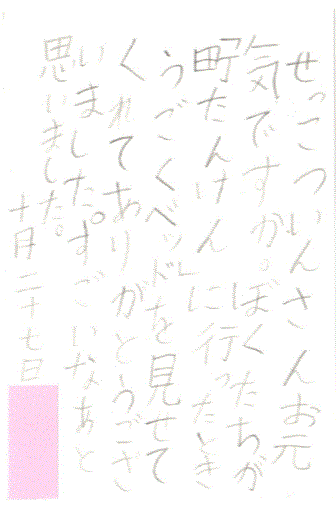 せっこついんさんお元
気ですか。ぼくたちが
「町たんけん」に行ったとき
うごくベッドを見せて
くれてありがとうござ
いました。すごいなあと
思いました。
十月二十七日